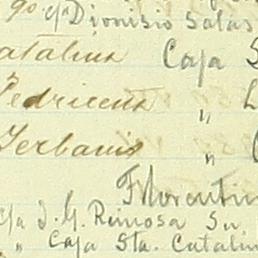 90 c/a Dionisio Salas
atalina Caja S
Pedricena " L
Yerbanis "
Florentin
c/a J. G. Reinosa Su
" Caja Sta. Catalin